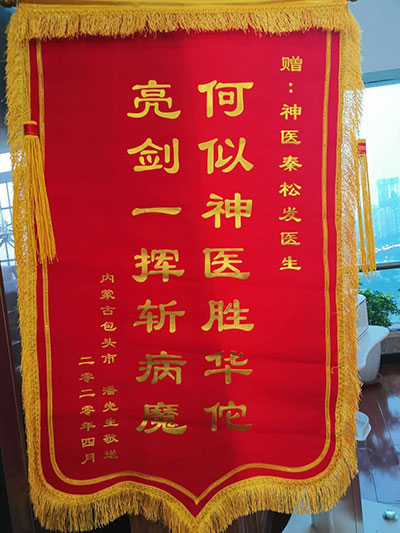 赠：神医秦松发医生
何似神医胜华佗
亮剑一挥斩病魔
内蒙古包头市 潘先生敬送
二零二零年四月